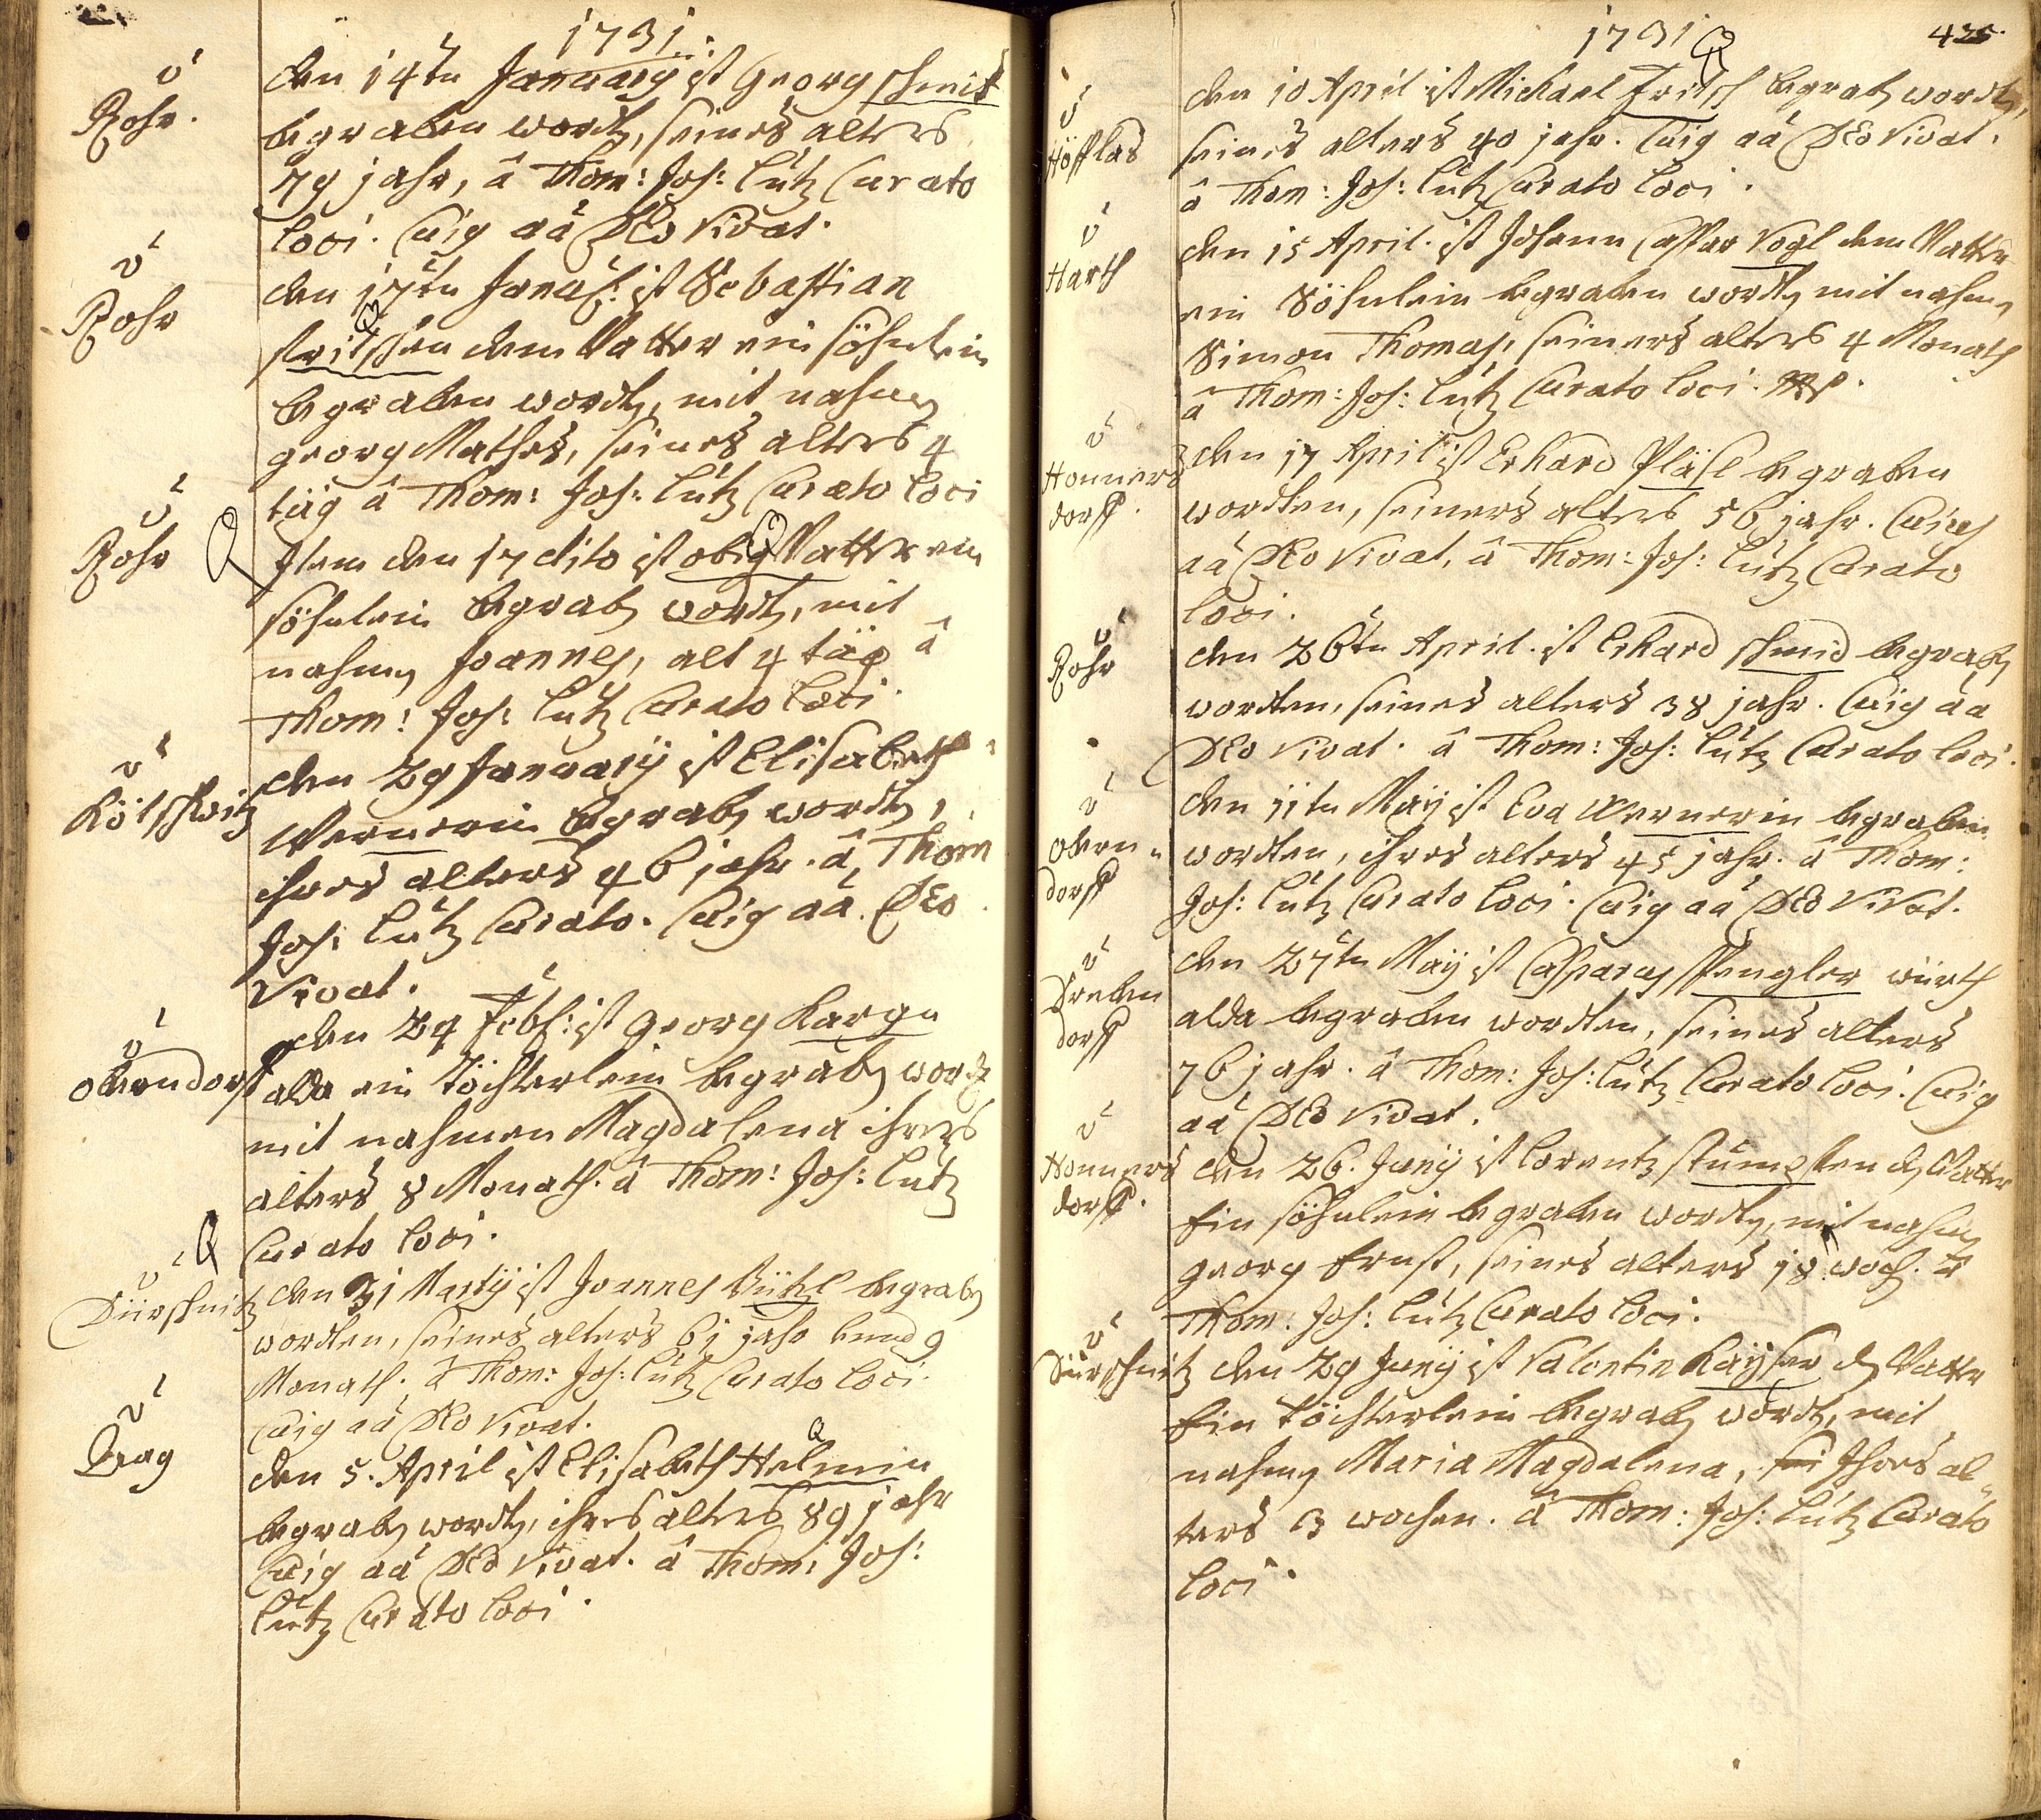 1731.
Rohr.
den 14tn January ist Georg Schmit
begraben wordn, seines alters
79 jahr, â Thom: Jos: Lutz Curato
loci. Cuiq aa DEo Vivat.
Rohr
den 17tn Januar: ist Sebastian
fritschen dem Vatter ein söhnlein
begraben wordn, mit nahmen
georg Mathes, seines alters 4
täg â Thom: Jos: Lutz Curato loci
Rohr
Item den 17 dito ist obig Vatter ein
söhnlein begrabn wordn, mit
nahmen Joannes, alt 4 täg â
Thom: Jos: Lutz Curato loci.
Kötschwitz
den 29 January ist Elisabeth
Wernerin begrabn wordn,
ihres alters 46 jahr. â Thom
Jos: Lutz Curato. Cuig aa DEo
Vivat.
oberndorff
den 24 Febr: ist georg Kargn
alda ein Töchterlein begrabn wordn
mit nahmen Magdalena ihres
alters 8 Monath. â Thom: Jos: Lutz
Curato loci.
Dürschnitz
den 31 Marty ist Joannes begrabn
wordten, seines alters 61 jahr 9
Monath. â Thom: Jos: Lutz Curato loci.
Cuig aa DEo Vivat.
Prag
den 5. April ist Elisabeth Helmin
begrabn wordn, ihres alters 89 jahr
Cuig aa DEo Vivat. â Thom: Jos:
Lutz Curato loci.
1731
425.
Höfflas
den 10 April ist Michael Fritsch begrabn wordn,
seines alters 40 jahr. Cuig aa DEo Vivat.
â Thom: Jos: Lutz Curato loci.
Harth
den 15 April. ist Johann Caspar Vogl dem Vatter
ein Söhnlein begraben wordn mit nahmen
Simon Thomas, seiners alters 4 Monath
â Thom: Jos: Lutz Curato loci.
Honners
dorff.
den 17 April ist Erhard Pläsl begraben
wordten, seiners alters 56 jahr. Cuig
aa DEo Vivat, â Thom: Jos: Lutz Curato
loci.
Rohr
den 26tn April. ist Erhard schmid begrabn
wordten, seines alters 38 jahr. Cuig aa
DEo Vivat. â Thom: Jos: Lutz Curato loci.
obern
dorff
den 11tn Maÿ ist Eva Wernerin begraben
wordten, ihres alters 45 jahr. â Thom:
Jos: Lutz Curato loci. Cuig aa DEo Vivat.
Dreben
dorff
den 27tn Maÿ ist Casparus Spengler würth
alda begraben wordten, seines alters
76 jahr. â Thom: Jos: Lutz Curato loci. Cuig
aa DEo Vivat.
Honners
dorff.
den 26. Junÿ ist Lorentz stümpften dn Vatter
Ein söhnlein begraben wordn, mit nahmen
georg Ernst, seines alters 18 woch. â
Thom: Jos: Lutz Curato loci.
Dürschnitz
den 29 Junÿ ist Valentin Kaÿser dn Vatter
Ein Töchterlein begrabn wordn, mit
nahmen Maria Magdalena, Ihres al-
ters 3 wochen. â Thom: Jos: Lutz Curato
loci.